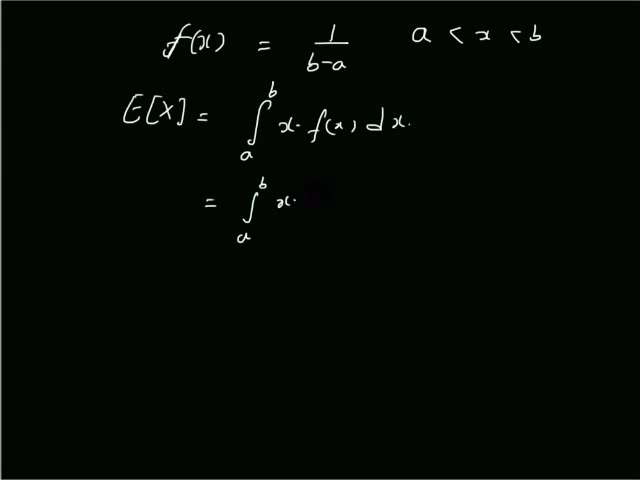 f(x) = 1/(b-a) a < x < b
E[X] = ∫_a^b x. f(x) dx.
= ∫_a^b x.